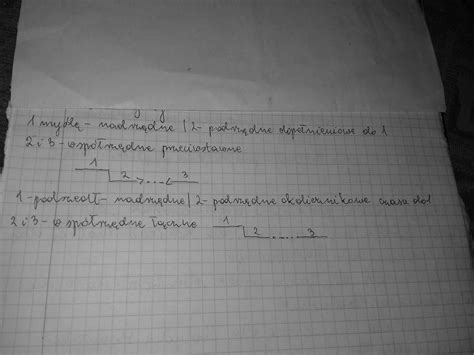 1 myślę - nadrzędne | 2 - podrzędne dopełnieniowe do 1
2 i 3 - współrzędne przeciwstawne
1
2 > ... < 3
1 - podszedł - nadrzędne | 2 - podrzędne okolicznikowe czasu do 1
2 i 3 - współrzędne łączne 1
2 .... 3